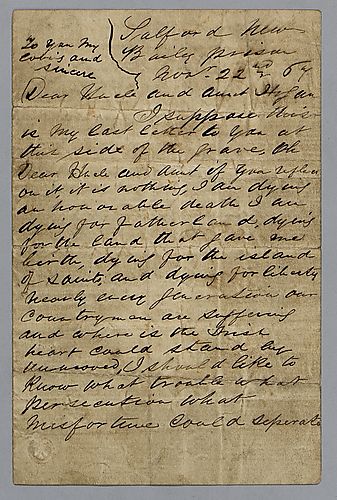 To You My
loving and
sincere
Salford New
Baily prison
Nov. 22nd 67
Dear Uncle and Aunt Hogan
I suppose this
is My last letter to you at
this side of the grave, Oh
Dear Uncle and Aunt if you reflect
on it it is nothing, I am dying
an honourable death I am
dying for fatherland, dying
for the land that gave me
birth, dying for the island
of saints, and dying for liberty
Nearly every generation our
Countrymen are suffering
and where is the Irish
heart could stand by
unmoved, I should like to
Know what trouble what
persecution what
misfortune could seperate